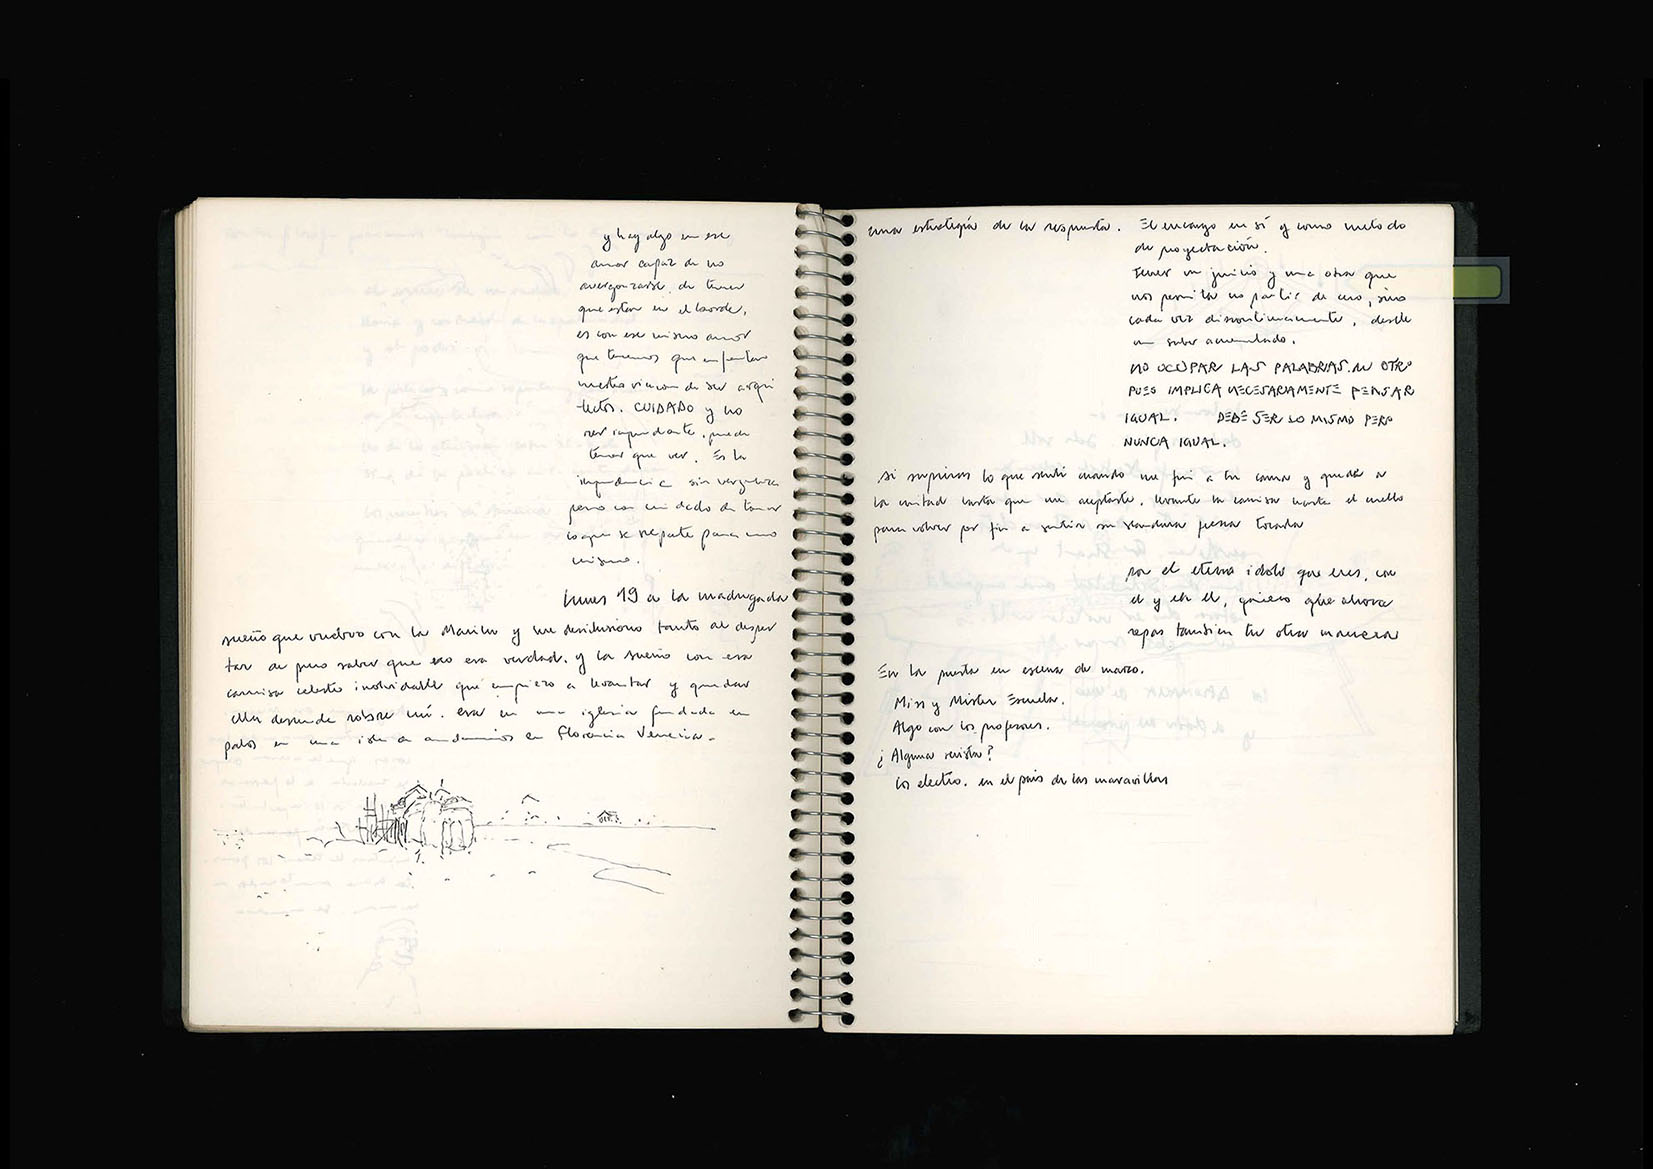 y hay algo en ese
amor capaz de no
avergonzarse, de tener
que estar en el borde,
es con ese mismo amor
que tenemos que enfrentar
nuestra de ser arqui
-tectos. CUIDADO y no
ser , puede
tener que ver. Es la
impudencia sin vergüenza
pero con cuidado de tomar
lo que se reparte para uno
mismo.
lunes 19 a la madrugada
sueño que vuelvo con la y me desilusiono tanto al desper
tar al pero saber que eso era verdad. y la sueño con esa
camisa celeste inolvidable que empiezo a levantar y quedar
ella desnuda sobre mí. era en una iglesia fundada en
palos en una isla de en Florencia Venecia.
una estrategia de la respuesta.
El encargo en sí y como metodo
de proyectación.
tener un juicio y una otra que
nos permita no partir de cero, sino
cada vez discontinuamente, desde
un saber acumulado.
NO OCUPAR LAS PALABRAS. OTRO
PUES IMPLICA NECESARIAMENTE PENSAR
IGUAL. DEBE SER LO MISMO PERO
NUNCA IGUAL.
si supieras lo que sentí cuando me fui a tu cama y quedé a
la mitad hasta que me aceptaste. levanté la camisa hasta el cuello
para volver por fin a sentir su
por el eterno idolo que eres, con
el y en el, quiero que ahora
sepas tambien tu otra manera
En la puesta en escena de marzo.
Miss y Mister Escuela.
Algo con los profesores.
¿Alguna revista?
los electro. en el país de las maravillas